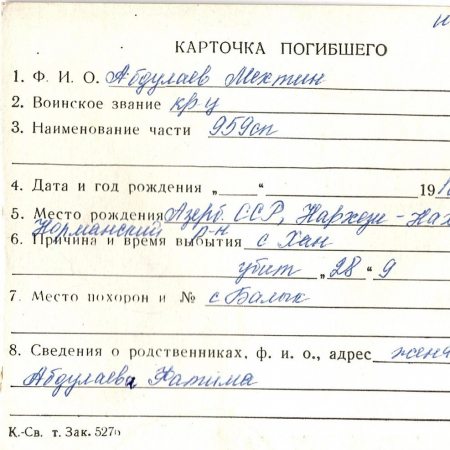 КАРТОЧКА ПОГИБШЕГО
1. Ф. И. О. Абдулаев Мехтин
2. Воинское звание кр-ц
3. Наименование части 959сп
4. Дата и год рождения „ “ 191
5. Место рождения Азерб. ССР,
Норманский р-н
6. Причина и время выбытия с Хан
убит „28“ 9
7. Место похорон и № с Балык
8. Сведения о родственниках, ф. и. о., адрес жена
Абдулаева Фатима
К.-Св. т. Зак. 527б